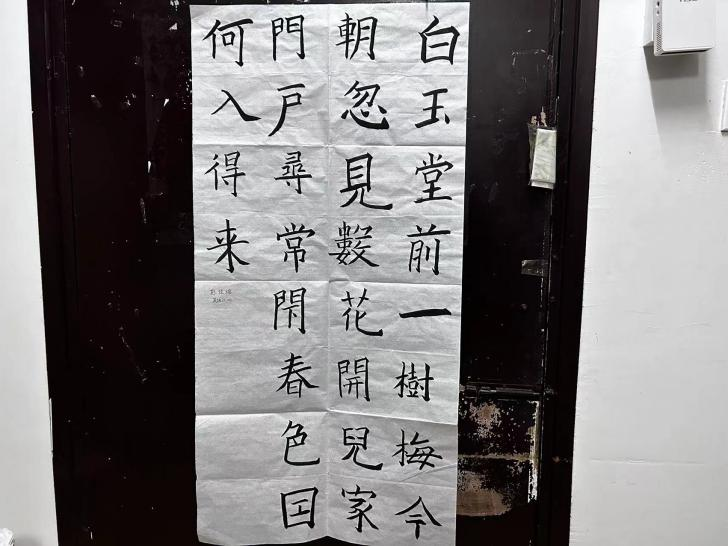 白玉堂前一樹梅今
朝忽見數花開兒家
門戶尋常閇春色囙
何入得来